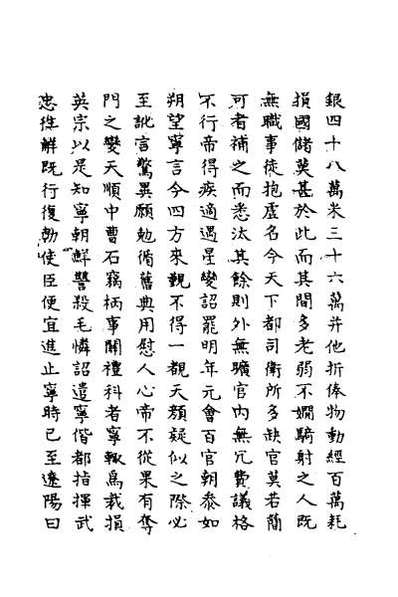 銀四十八萬米三十六萬并他折俸物動經百萬耗
損國儲莫甚於此而其間多老弱不嫺騎射之人既
無職事徒抱虛名今天下都司衛所多缺官莫若簡
可者補之而悉汰其餘則外無曠官內無冗費議格
不行帝得疾適遇星變詔罷明年元會百官朝叅如
朔望寧言今四方來覲不得一覩天顏疑似之際必
至訛言驚異願勉循舊典用慰人心帝不從果有奪
門之變天順中曹石竊柄事關禮科者寧輒爲裁損
英宗以是知寧朝鮮讐殺毛憐詔遣寧偕都指揮武
忠徃解既行復勅使臣便宜進止寧時已至遼陽曰